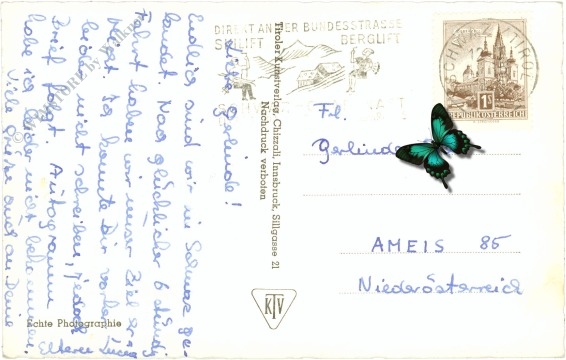 DIREKT AN DER BUNDESSTRASSE
SKILIFT BERGLIFT
REPUBLIK ÖSTERREICH
Liebe Gerlinde!
Endlich sind wir in Schwaz ge-
landet. Nach glücklicher 6 stündig
Fahrt haben wir unser Ziel er-
reicht. Ich konnte Dir vorher
leider nicht schreiben, jedoch
Brief folgt. Autogramm
habe ich leider nicht bekommen.
Viele Grüße auch an Deine
Eltern
Echte Photographie
Tiroler Kunstverlag, Chizzali, Innsbruck, Sillgasse 21
Nachdruck verboten
KTV
Frl.
Gerlinde
AMEIS 85
Niederösterreich